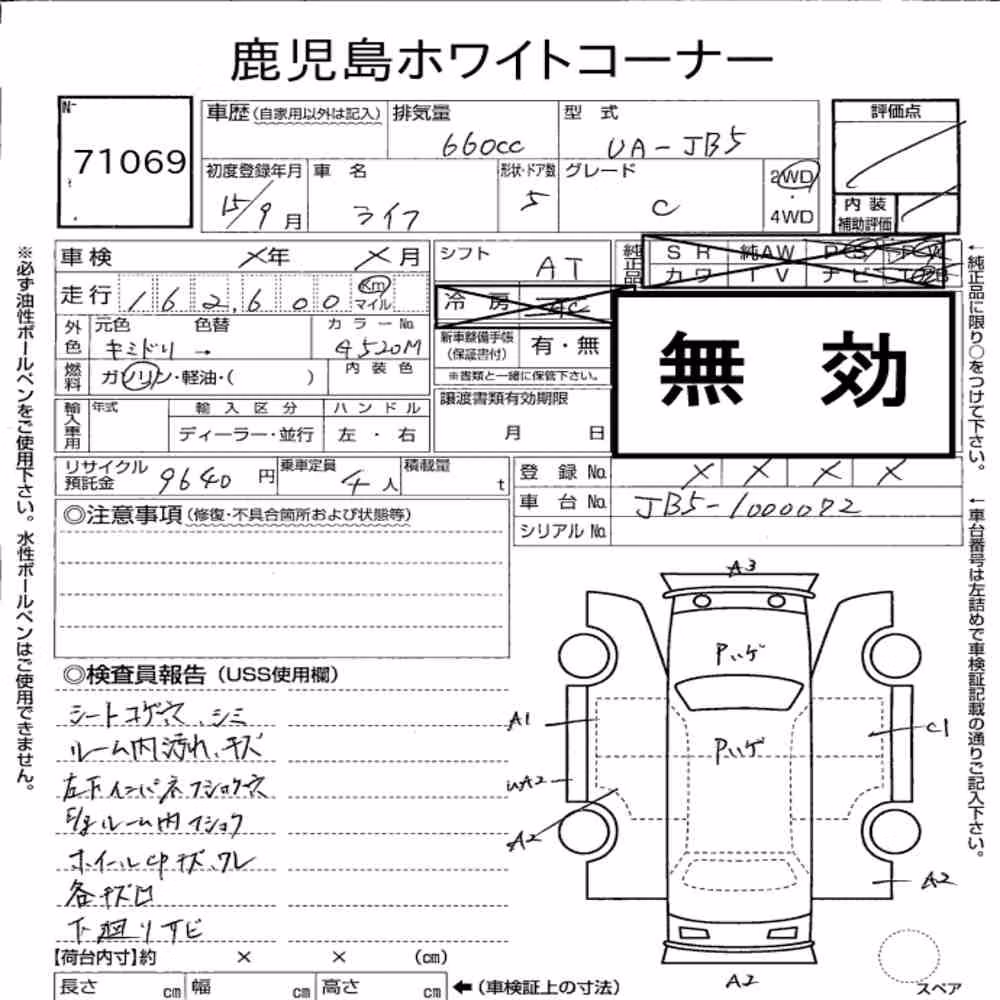 鹿児島ホワイトコーナー
No.
71069
車歴(自家用以外は記入)
排気量
660cc
型 式
UA-JB5
評価点
初度登録年月
15/9月
車 名
ライフ
形状・ドア数
5
グレード
C
2WD
・
4WD
内 装
補助評価
車検 ×年 ×月
シフト
AT
純正品
SR 純AW PS PW
カワ TV ナビ
走行 162,600 Km
マイル
冷 房 AC
外色
元色 色替 カラーNo.
キミドリ → G520M
新車整備手帳
(保証書付)
有・無
※書類と一緒に保管下さい。
無 効
燃料
ガソリン・軽油・( )
内 装 色
譲渡書類有効期限
月 日
輸入車用
年式
輸 入 区 分
ハ ン ド ル
ディーラー・並行
左 ・ 右
リサイクル
預託金
9640 円
乗車定員
4 人
積載量
t
登 録 No. × × × ×
車 台 No. JB5-1000072
シリアル No.
◎注意事項(修復・不具合箇所および状態等)
◎検査員報告(USS使用欄)
シートコゲ穴、シミ
ルーム内汚れ、キズ
左下インパネフショク穴
ルーム内フショク
ホイールCPキズ、ワレ
各キズ凹
下廻りサビ
【荷台内寸】約 × × (cm)
長さ cm 幅 cm 高さ cm
←(車検証上の寸法)
A3
Pハゲ
A1
C1
Pハゲ
UA2
A2
A2
A2
スペア
※必ず油性ボールペンをご使用下さい。水性ボールペンはご使用できません。
←純正品に限り○をつけて下さい。
←車台番号は左詰めで車検証記載の通りご記入下さい。